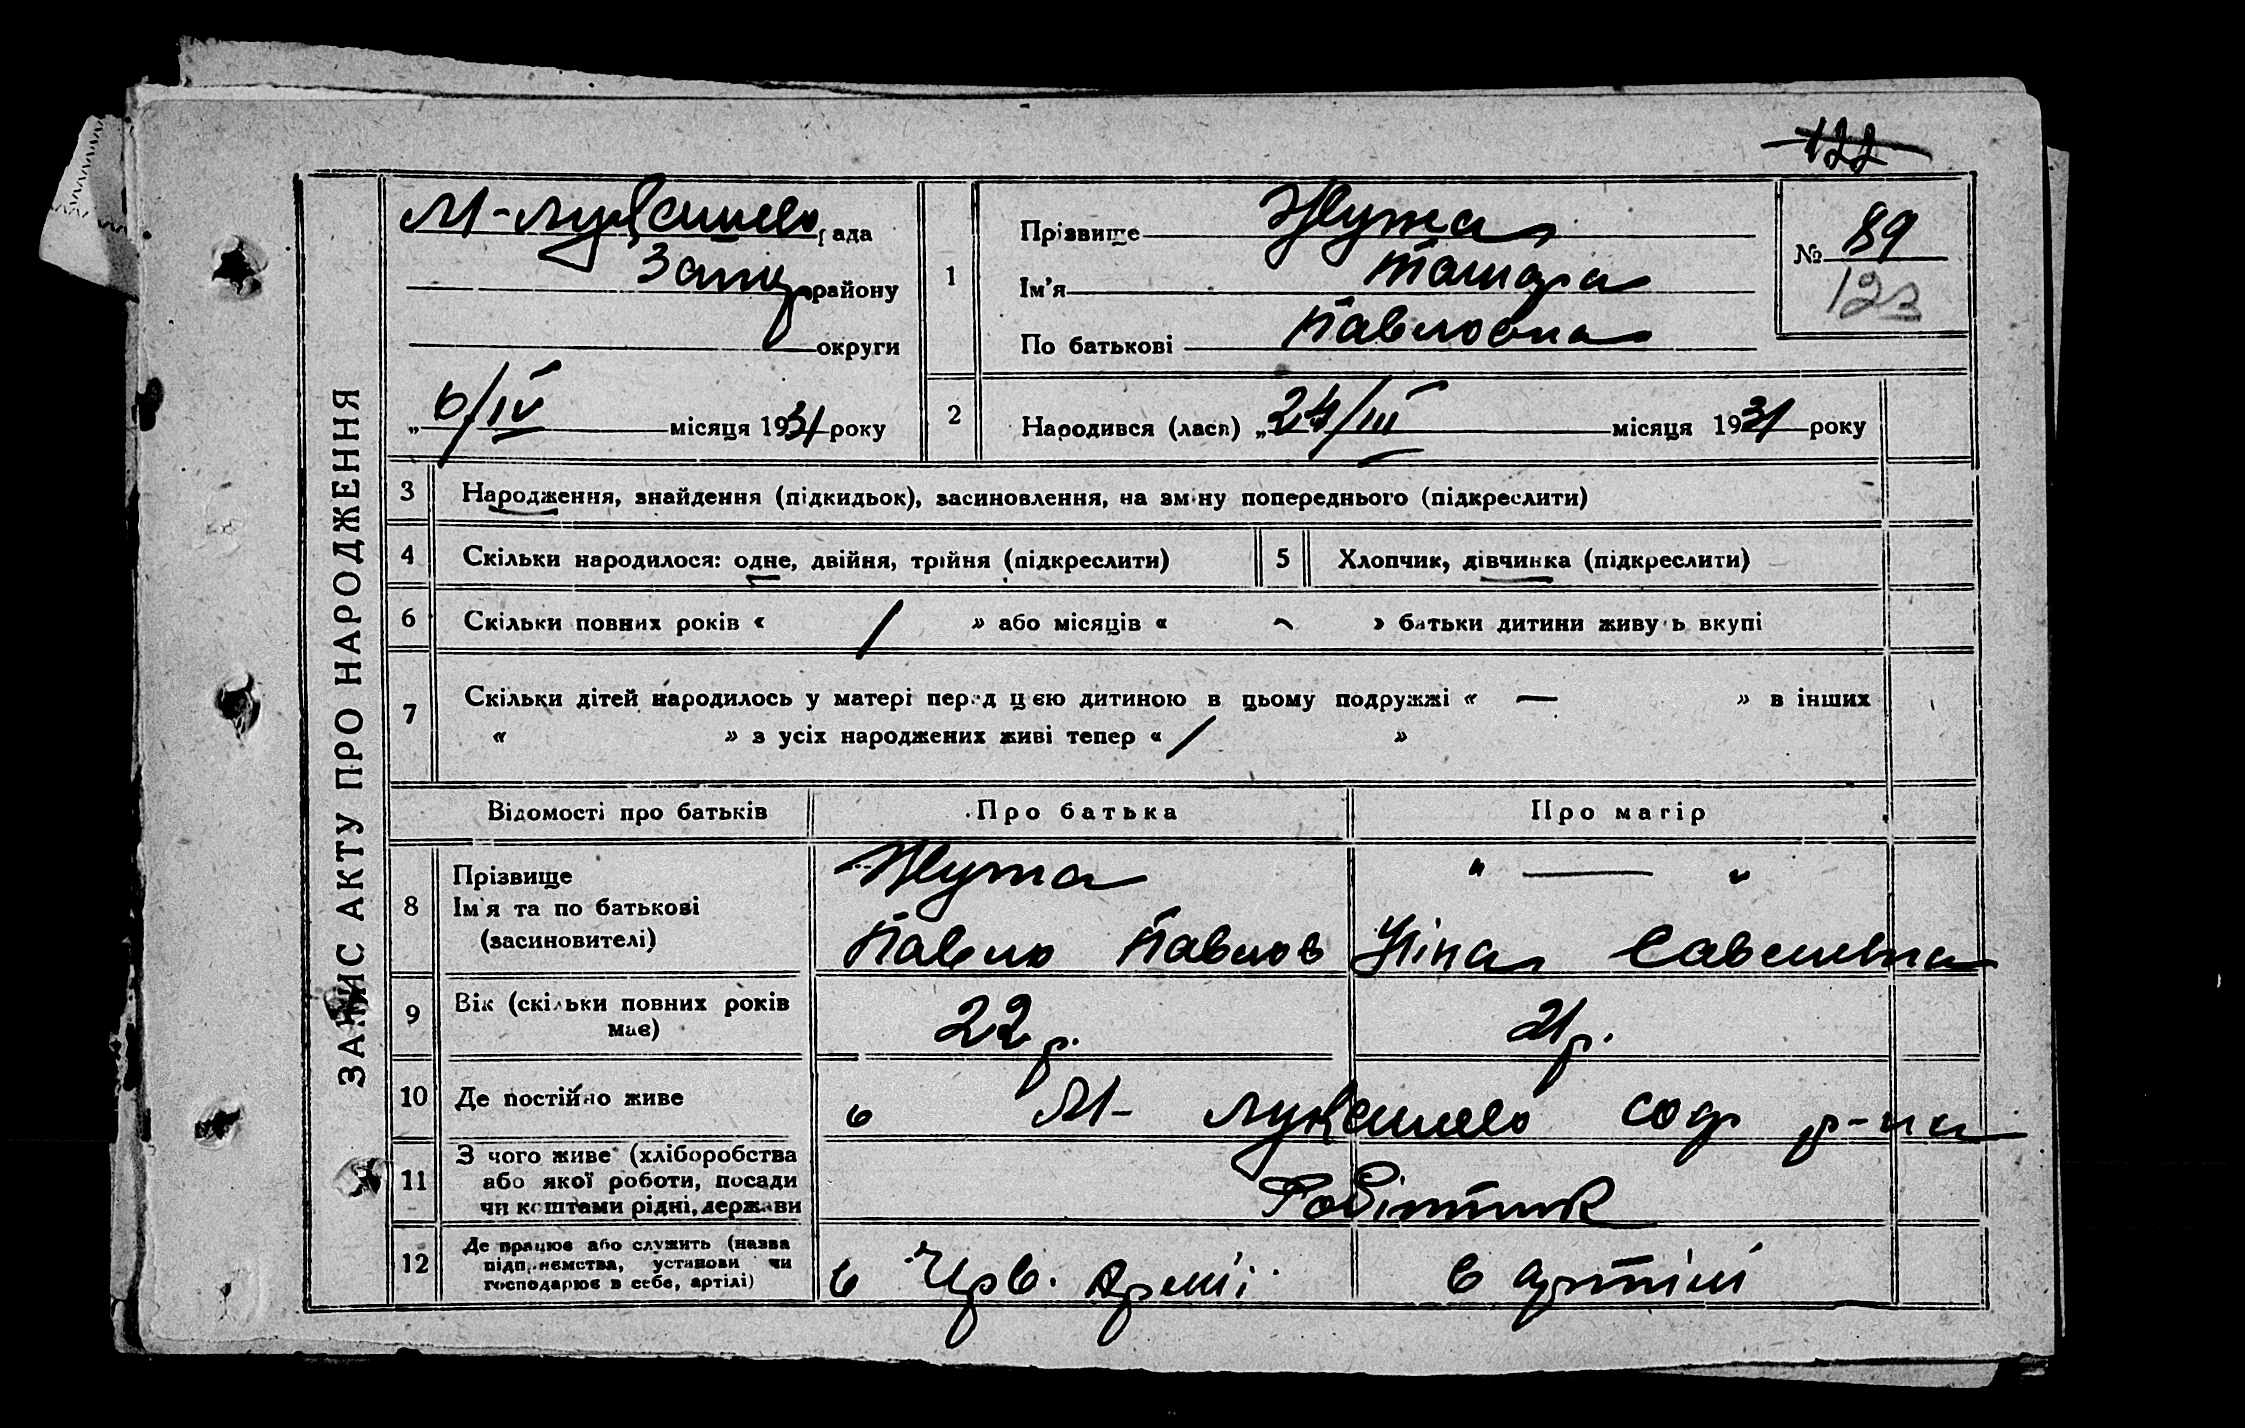 122
ЗАПИС АКТУ ПРО НАРОДЖЕННЯ
М-Лукашево рада
району
округи
„6/IV місяця 1931 року
1
Прізвище Жута
Ім'я Тамара
По батькові Павловна
№ 89
123
2
Народився (лася) „24/III місяця 1931 року
3 Народження, знайдення (підкидьок), засиновлення, на зміну попереднього (підкреслити)
4 Скільки народилося: одне, двійня, трійня (підкреслити)
5 Хлопчик, дівчинка (підкреслити)
6 Скільки повних років « / » або місяців « – » батьки дитини живуть вкупі
7 Скільки дітей народилось у матері перед цією дитиною в цьому подружжі « — » в інших
« » з усіх народжених живі тепер « / »
Відомості про батьків Про батька Про матір
8 Прізвище
Ім'я та по батькові
(засиновителі)
Жута " — "
Павло Павлов Ніна Савелевна
9 Вік (скільки повних років
має)
22 р. 21 р.
10 Де постійно живе
в М-Лукашево р-на
11 З чого живе (хліборобства
або якої роботи, посади
чи коштами рідні, держави
Робітник
12 Де працює або служить (назва
підприємства, установи чи
господарює в себе, артілі)
в Черв. Армії в артілі